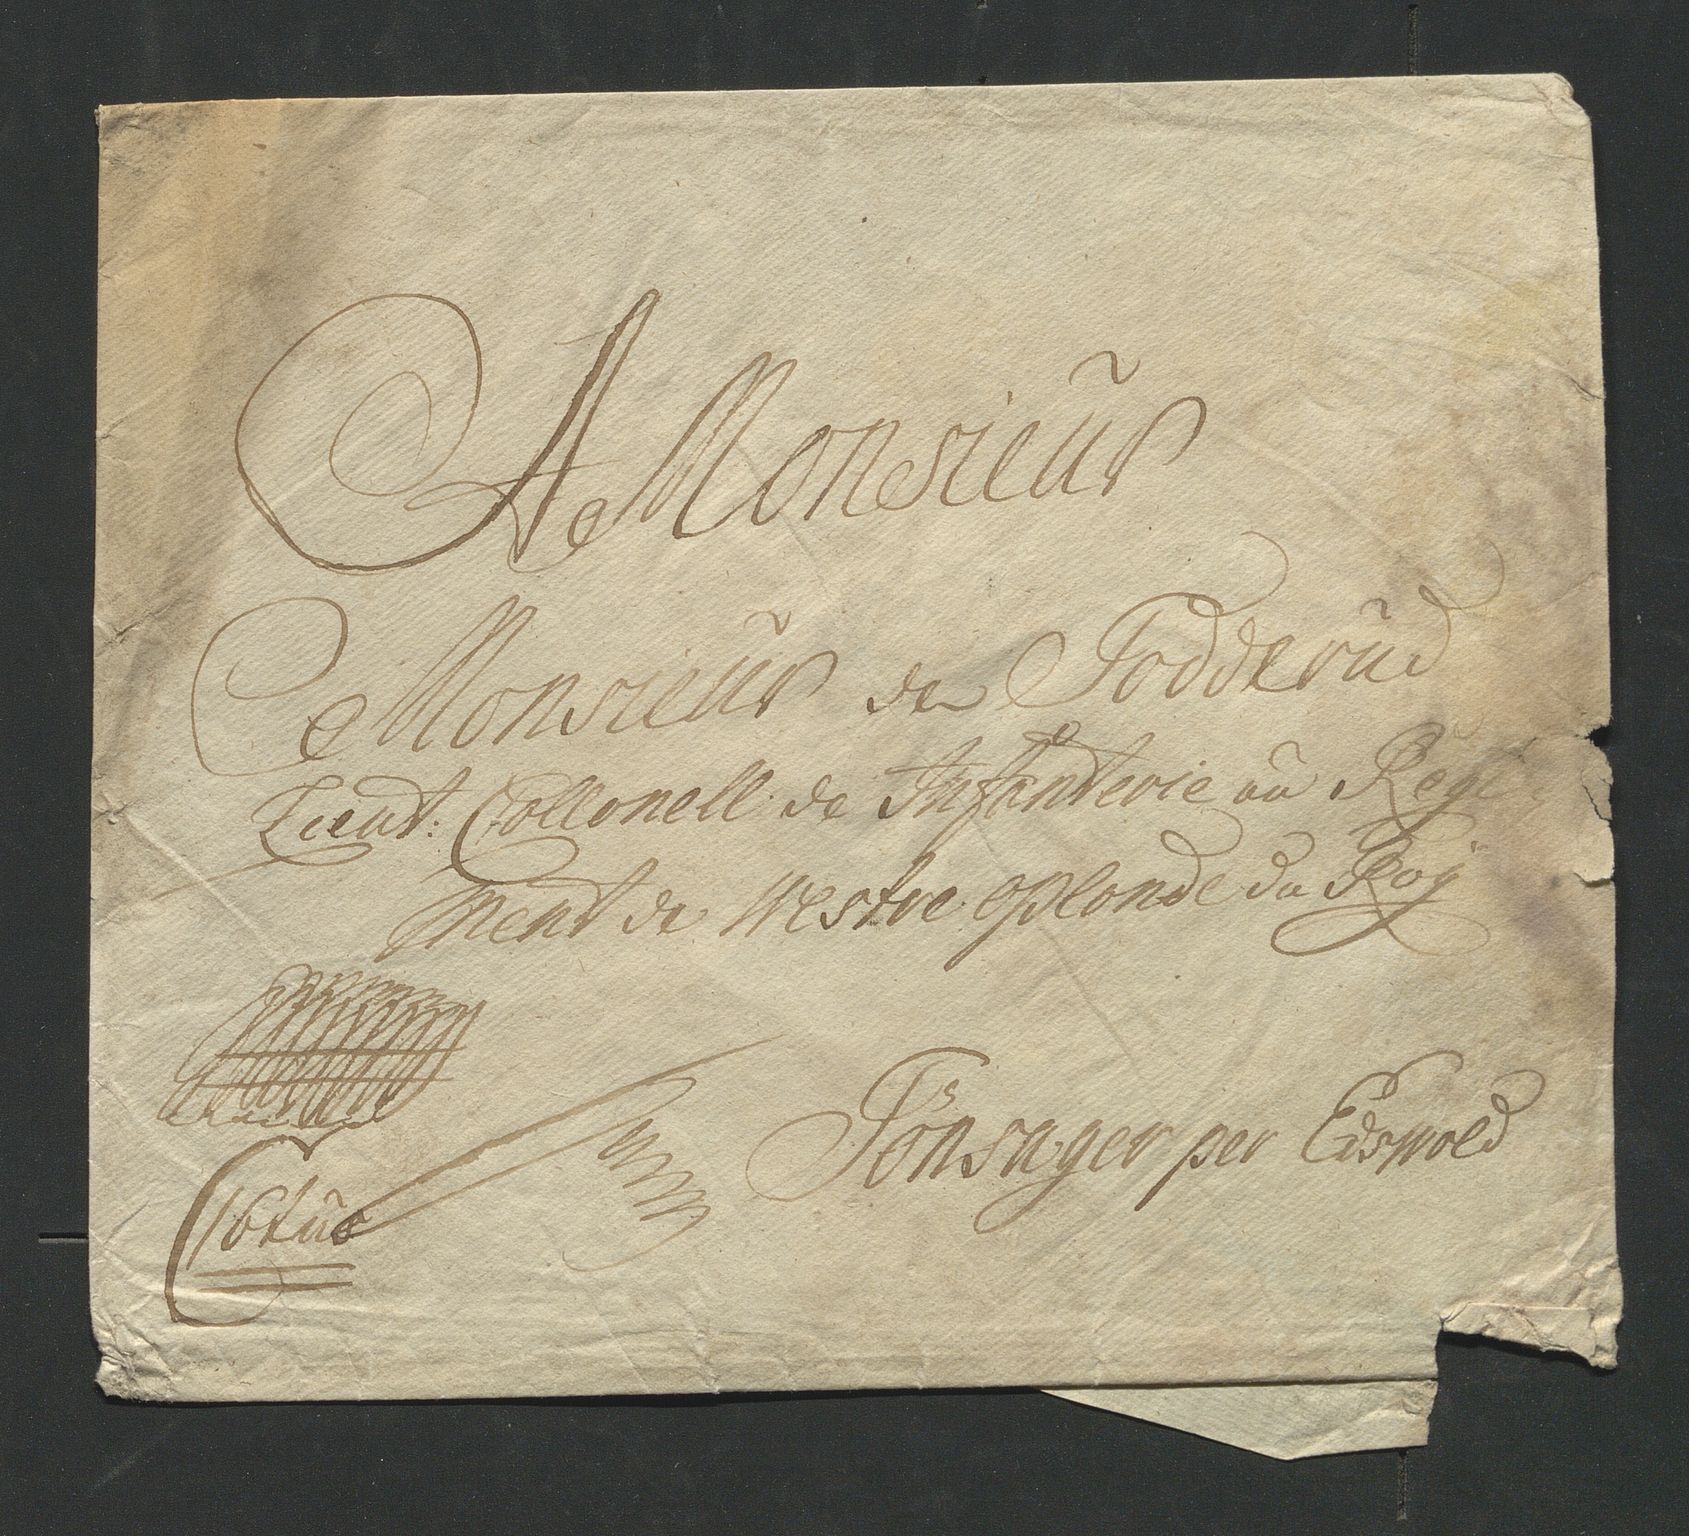 A Monsieur
Monsieur de Todderud
Lieut: Collonell de Infanterie au Regi
ment de Westre Oplande du Roy
Citùs
Tönsager per Eidswold